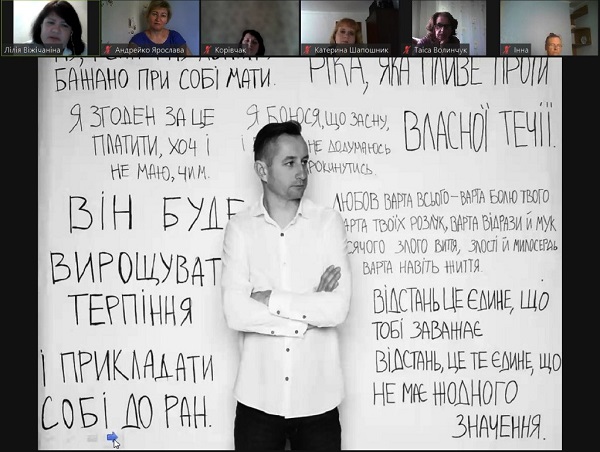 Лілія Віжічаніна
Андрейко Ярослава
Корівчак
Катерина Шапошник
Таїса Волинчук
Інна
БАЖАНО ПРИ СОБІ МАТИ.
Я ЗГОДЕН ЗА ЦЕ
ПЛАТИТИ, ХОЧ І
НЕ МАЮ, ЧИМ.
ВІН БУДЕ
ВИРОЩУВАТ
ТЕРПІННЯ
І ПРИКЛАДАТИ
СОБІ ДО РАН.
Я БОЮСЯ, ЩО ЗАСНУ,
І НЕ ДОДУМАЮСЬ
РОКИНУТИСЬ.
РІКА, ЯКА ПЛИВЕ ПРОТИ
ВЛАСНОЇ ТЕЧІЇ.
ЛЮБОВ ВАРТА ВСЬОГО – ВАРТА БОЛЮ ТВОГО
АРТА ТВОЇХ РОЗЛУК, ВАРТА ВІДРАЗИ Й МУК
СЯЧОГО ЗЛОГО ВИТТЯ, ЗЛОСТІ Й МИЛОСЕРДЬ
ВАРТА НАВІТЬ ЖИТТЯ.
ВІДСТАНЬ ЦЕ ЄДИНЕ, ЩО
ТОБІ ЗАВАЖАЄ
ВІДСТАНЬ, ЦЕ ТЕ ЄДИНЕ, ЩО
НЕ МАЄ ЖОДНОГО
ЗНАЧЕННЯ.